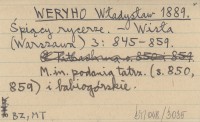 WERYHO Władysław 1889.
Śpiący rycerze. – Wisła
(Warszawa) 3: 845-859.
M.in. podania tatrz. (s. 850,
859) i babiogórskie.
BZ, MT